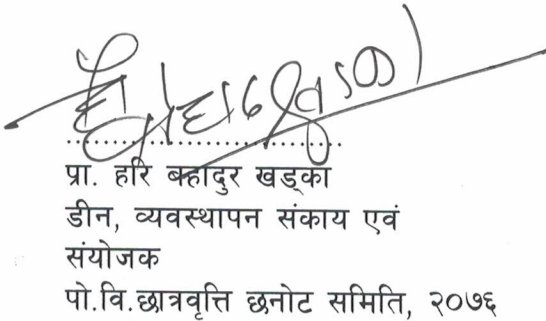 प्रा. हरि बहादुर खड्का
डीन, व्यवस्थापन संकाय एवं
संयोजक
पो.वि.छात्रवृत्ति छनोट समिति, २०७६